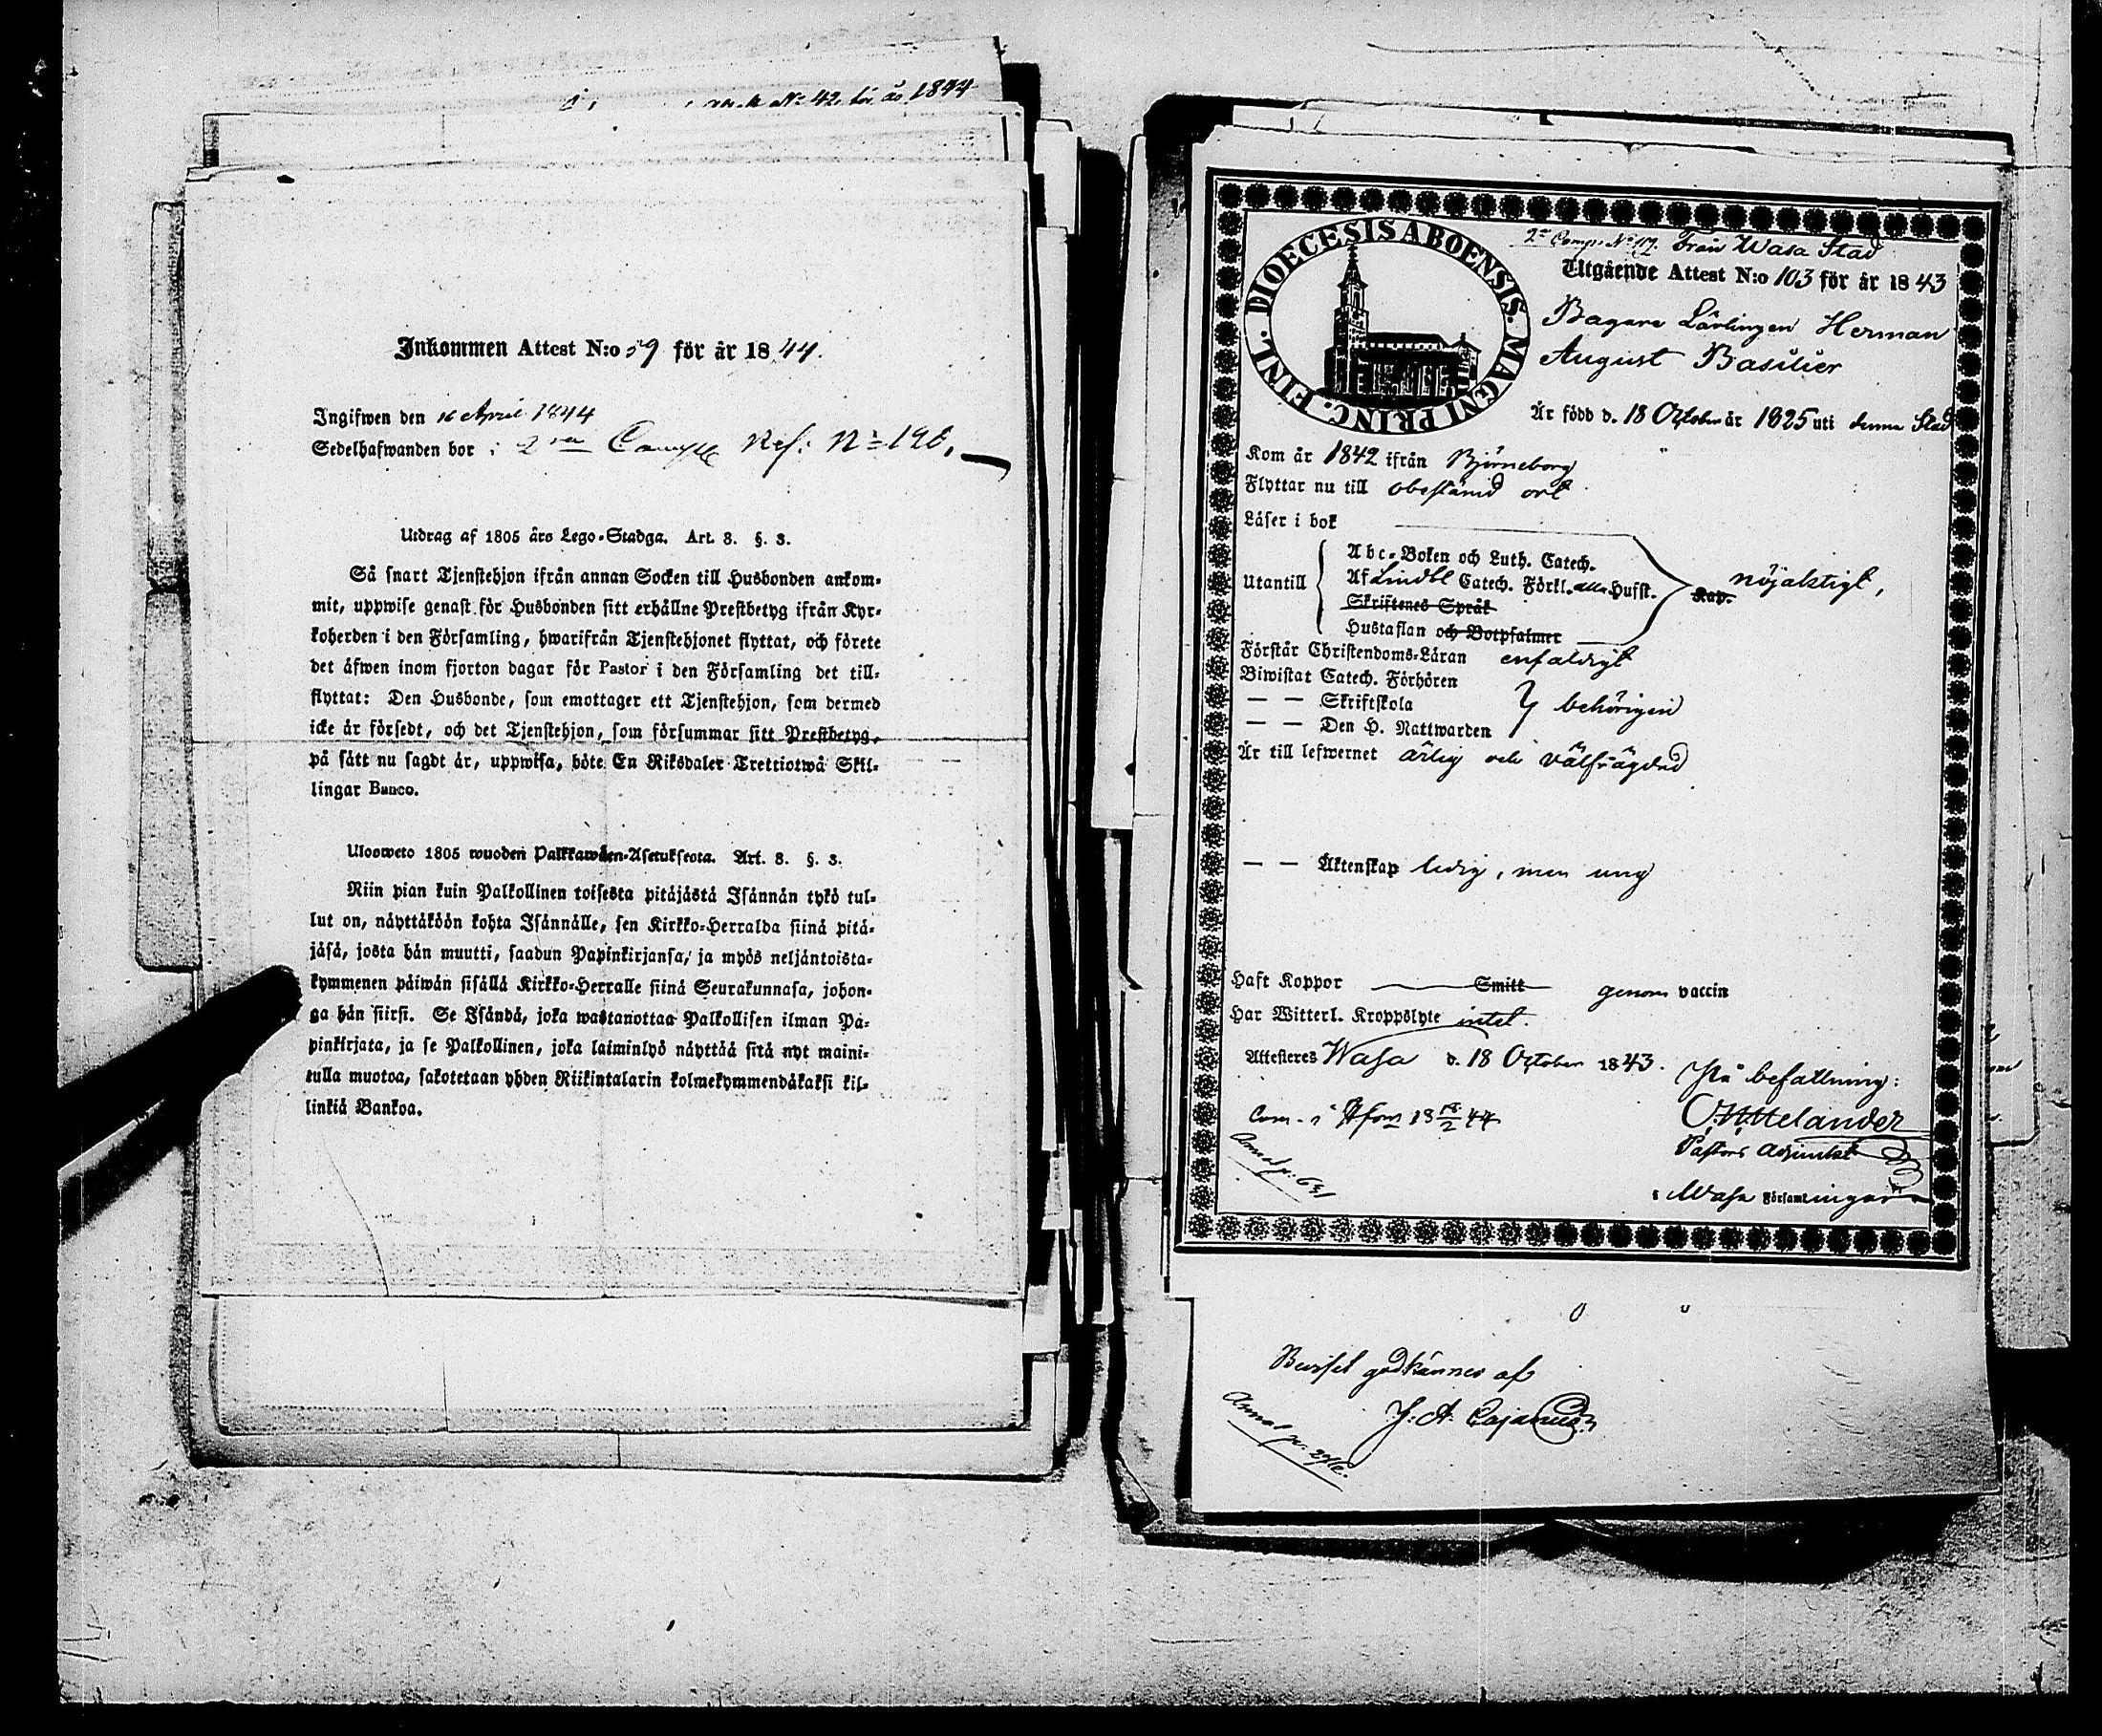 N:o 42. för år 1844
Inkommen Attest N:o 59 för år 1844.
Ingifwen den 16 April 1844
Sedelhafwanden bor i 2:ra Comp Ref: N:o
Utdrag af 1805 års Lego-Stadga. Art. 8. §. 3.
Så snart Tjenstehjon ifrån annan Socken till Husbonden ankom-
mit, uppwise genast för Husbonden sitt erhållne Prestbetyg ifrån Kyr-
koherden i den Församling, hwarifrån Tjenstehjonet flyttat, och förete
det äfwen inom fjorton dagar för Pastor i den Församling det till-
flyttat: Den Husbonde, som emottager ett Tjenstehjon, som dermed
icke är försedt, och det Tjenstehjon, som försummar sitt Prestbetyg,
på sätt nu sagdt är, uppwisa, böte En Riksdaler Trettiotwå Skil-
lingar Banco.
Ulosweto 1805 wuoden Palkkawäen-Asetuksesta. Art. 8. §. 3.
Niin pian kuin Palkollinen toisesta pitäjästä Isännän tykö tul-
lut on, näyttäköön kohta Isännälle, sen Kirkko-Herralda siinä pitä-
jäsä, josta hän muutti, saadun Papinkirjansa, ja myös neljäntoista-
kymmenen päiwän sisällä Kirkko-Herralle siinä Seurakunnasa, johon-
ga hän siirsi. Se Isändä, joka wastanottaa Palkollisen ilman Pa-
pinkirjata, ja se Palkollinen, joka laiminlyö näyttää sitä nyt maini-
tulla muotoa, sakotetaan yhden Riikintalarin kolmekymmendäkaksi kil-
linkiä Bankoa.
DIOECESIS ABOENSIS. MAGNI PRINC. FINL.
2:a Comp. N:o 117. Från Wasa Stad
Utgående Attest N:o 103 för år 1843
Bagare Lärlingen Herman
August Basilier
Är född d. 18 October år 1825 uti denna Stad
Kom år 1842 ifrån Björneborg
Flyttar nu till obestämd ort
Läser i bok
Abc-Boken och Luth. Catech.
Utantill Af Lindbl Catech. Förkl. alla Hufst. Kap. nöjaktigt,
Skriftenes Språk
Hustaflan och Botpsalmer
Förstår Christendoms-Läran enfaldigt
Biwistat Catech. Förhören
— — Skriftskola behörigen
— — Den H. Nattwarden
Är till lefwernet ärlig och välfrägdad
— — Äktenskap ledig, men ung
Haft Koppor Smitt genom vaccin
Har Witterl. Kroppslyte intet.
Attesteras Wasa d. 18 October 1843.
På befallning:
Com. i Hfors 18 18/2 44
Melander
Annot p. 631
Pastors Adjunkt
i Wasa Församlingar
Beviset godkännes af
J: A. Cajanus